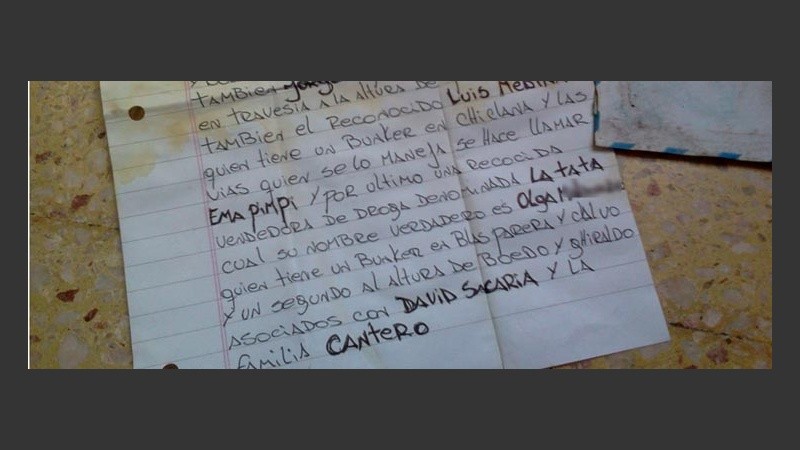 TAMBIEN JORGE
EN TRAVESIA A LA ALTURA DE LUIS MEDINA
TAMBIEN EL RECONOCIDO
QUIEN TIENE UN BUNKER EN CHICLANA Y LAS
VIAS QUIEN SE LO MANEJA SE HACE LLAMAR
EMA PIMPI Y POR ULTIMO UNA RECOCIDA
VENDEDORA DE DROGA DENOMINADA LA TATA
CUAL SU NOMBRE VERDADERO ES OLGA M
QUIEN TIENE UN BUNKER EN BLAS PARERA Y CALVO
Y UN SEGUNDO AL ALTURA DE BOEDO Y GHIRALDO
ASOCIADOS CON DAVID SACARIA Y LA
FAMILIA CANTERO